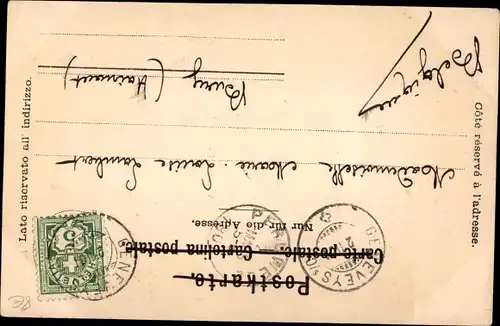 Postkarte.
Carte postale. Cartolina postale
Nur für die Adresse.
Côté réservé à l'adresse.
Lato riservato all' indirizzo.
Mademoiselle Marie-Louise Lambert
Bury (Hainaut)
Belgique